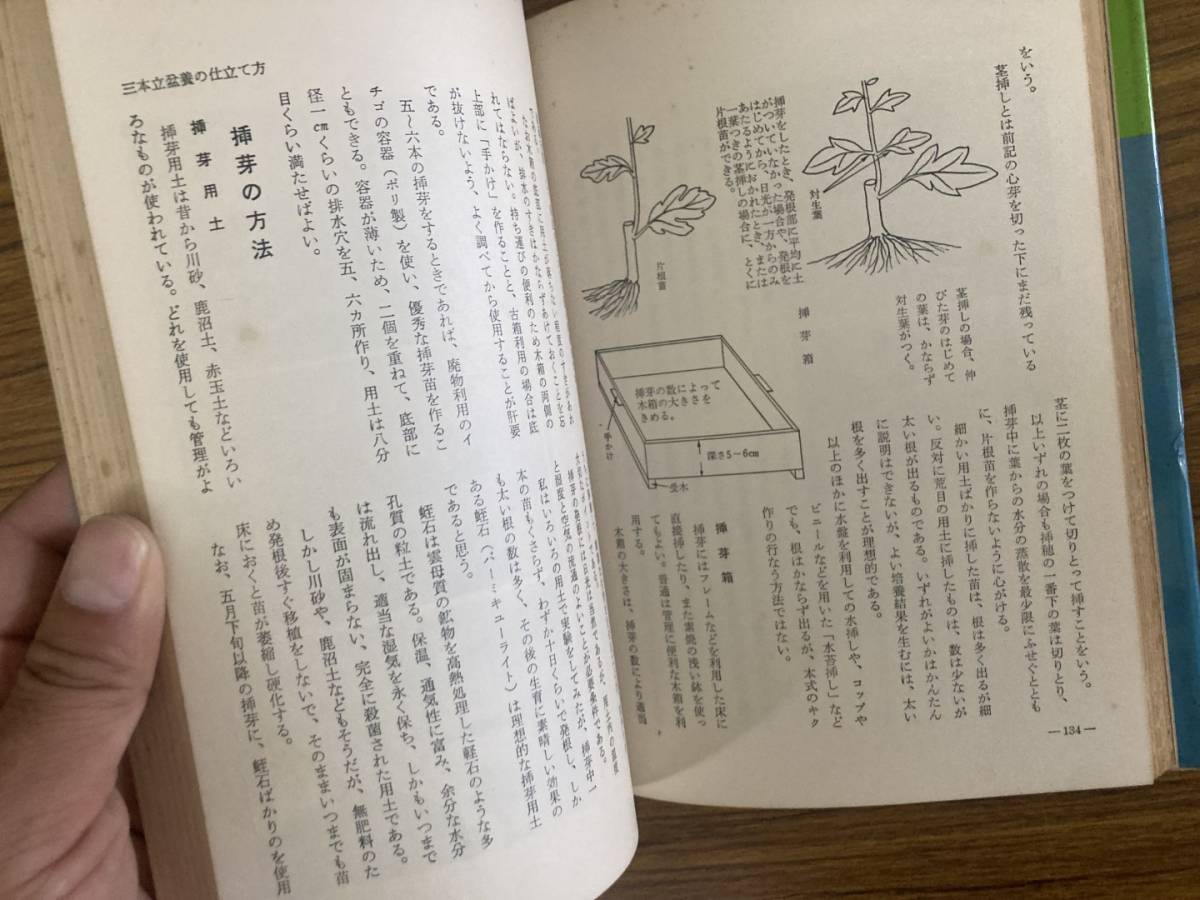 をいう。
茎挿しとは前記の心芽を切った下にまだ残っている
対生葉
茎挿しの場合、伸
びた芽のはじめて
の葉は、かならず
対生葉がつく。
挿芽をしたとき、発根部に平均に土
がついていなかった場合や、発根を
はじめてから、日光が一方からのみ
あたるようにおかれたとき、または
一葉つきの茎挿しの場合に、とくに
片根苗ができる。
片根苗
挿芽箱
挿芽の数によって
木箱の大きさを
きめる。
深さ5~6cm
手かけ
受木
茎に二枚の葉をつけて切りとって挿すことをいう。
以上いずれの場合も挿穂の一番下の葉は切りとり、
挿芽中に葉からの水分の蒸散を最少限にふせぐととも
に、片根苗を作らないように心がける。
細かい用土ばかりに挿した苗は、根は多く出るが細
い。反対に荒目の用土に挿したものは、数は少ないが
太い根が出るものである。いずれがよいかはかんたん
に説明はできないが、よい培養結果を生むには、太い
根を多く出すことが理想的である。
以上のほかに水盤を利用しての水挿しや、コップや
ビニールなどを用いた「水苔挿し」など
でも、根はかならず出るが、本式のキク
作りの行なう方法ではない。
挿芽箱
挿芽にはフレームなどを利用した床に
直接挿したり、また素焼の浅い鉢を使っ
てもよい。普通は管理に便利な木箱を利
用する。
木箱の大きさは、挿芽の数により適当
—134—
ばよいが、排水のすきはかならずあけておくことを忘
れてはならない。持ち運びの便利のため木箱の両側の
上部に「手かけ」を作ることと、古箱利用の場合は底
が抜けないよう、よく調べてから使用することが肝要
である。
五〜六本の挿芽をするときであれば、廃物利用のイ
チゴの容器(ポリ製)を使い、優秀な挿芽苗を作るこ
ともできる。容器が薄いため、二個を重ねて、底部に
径一cmくらいの排水穴を五、六ヵ所作り、用土は八分
目くらい満たせばよい。
挿芽の方法
挿芽用土
挿芽用土は昔から川砂、鹿沼土、赤玉土などいろい
ろなものが使われている。どれを使用しても管理がよ
三本立盆養の仕立て方
と湿度と空気の流通のよいことが必要条件である。
私はいろいろの用土で実験をしてみたが、挿芽中一
本の苗もくさらず、わずか十日くらいで発根し、しか
も太い根の数は多く、その後の生育に素晴しい効果の
ある蛭石(バーミキューライト)は理想的な挿芽用土
であると思う。
蛭石は雲母質の鉱物を高熱処理した軽石のような多
孔質の粒土である。保温、通気性に富み、余分な水分
は流れ出し、適当な湿気を永く保ち、しかもいつまで
も表面が固まらない、完全に殺菌された用土である。
しかし川砂や、鹿沼土などもそうだが、無肥料のた
め発根後すぐ移植をしないで、そのままいつまでも苗
床におくと苗が萎縮し硬化する。
なお、五月下旬以降の挿芽に、蛭石ばかりのを使用